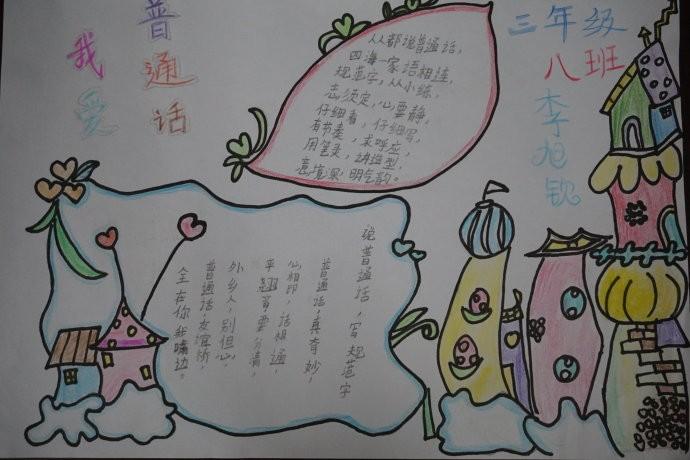 我爱
普通话
三年级
八班
李旭钦
从都说普通话,
四海一家语相连,
规范字,从小练,
志须定,心要静,
仔细看,仔细写,
有节奏,求呼应,
用笔灵,讲造型,
明气韵。
说普通话,写规范字
普通话,真奇妙,
心相印,话相通,
平翘音要分清,
外乡人,别但心,
普通话友谊桥,
全在你我嘴边。